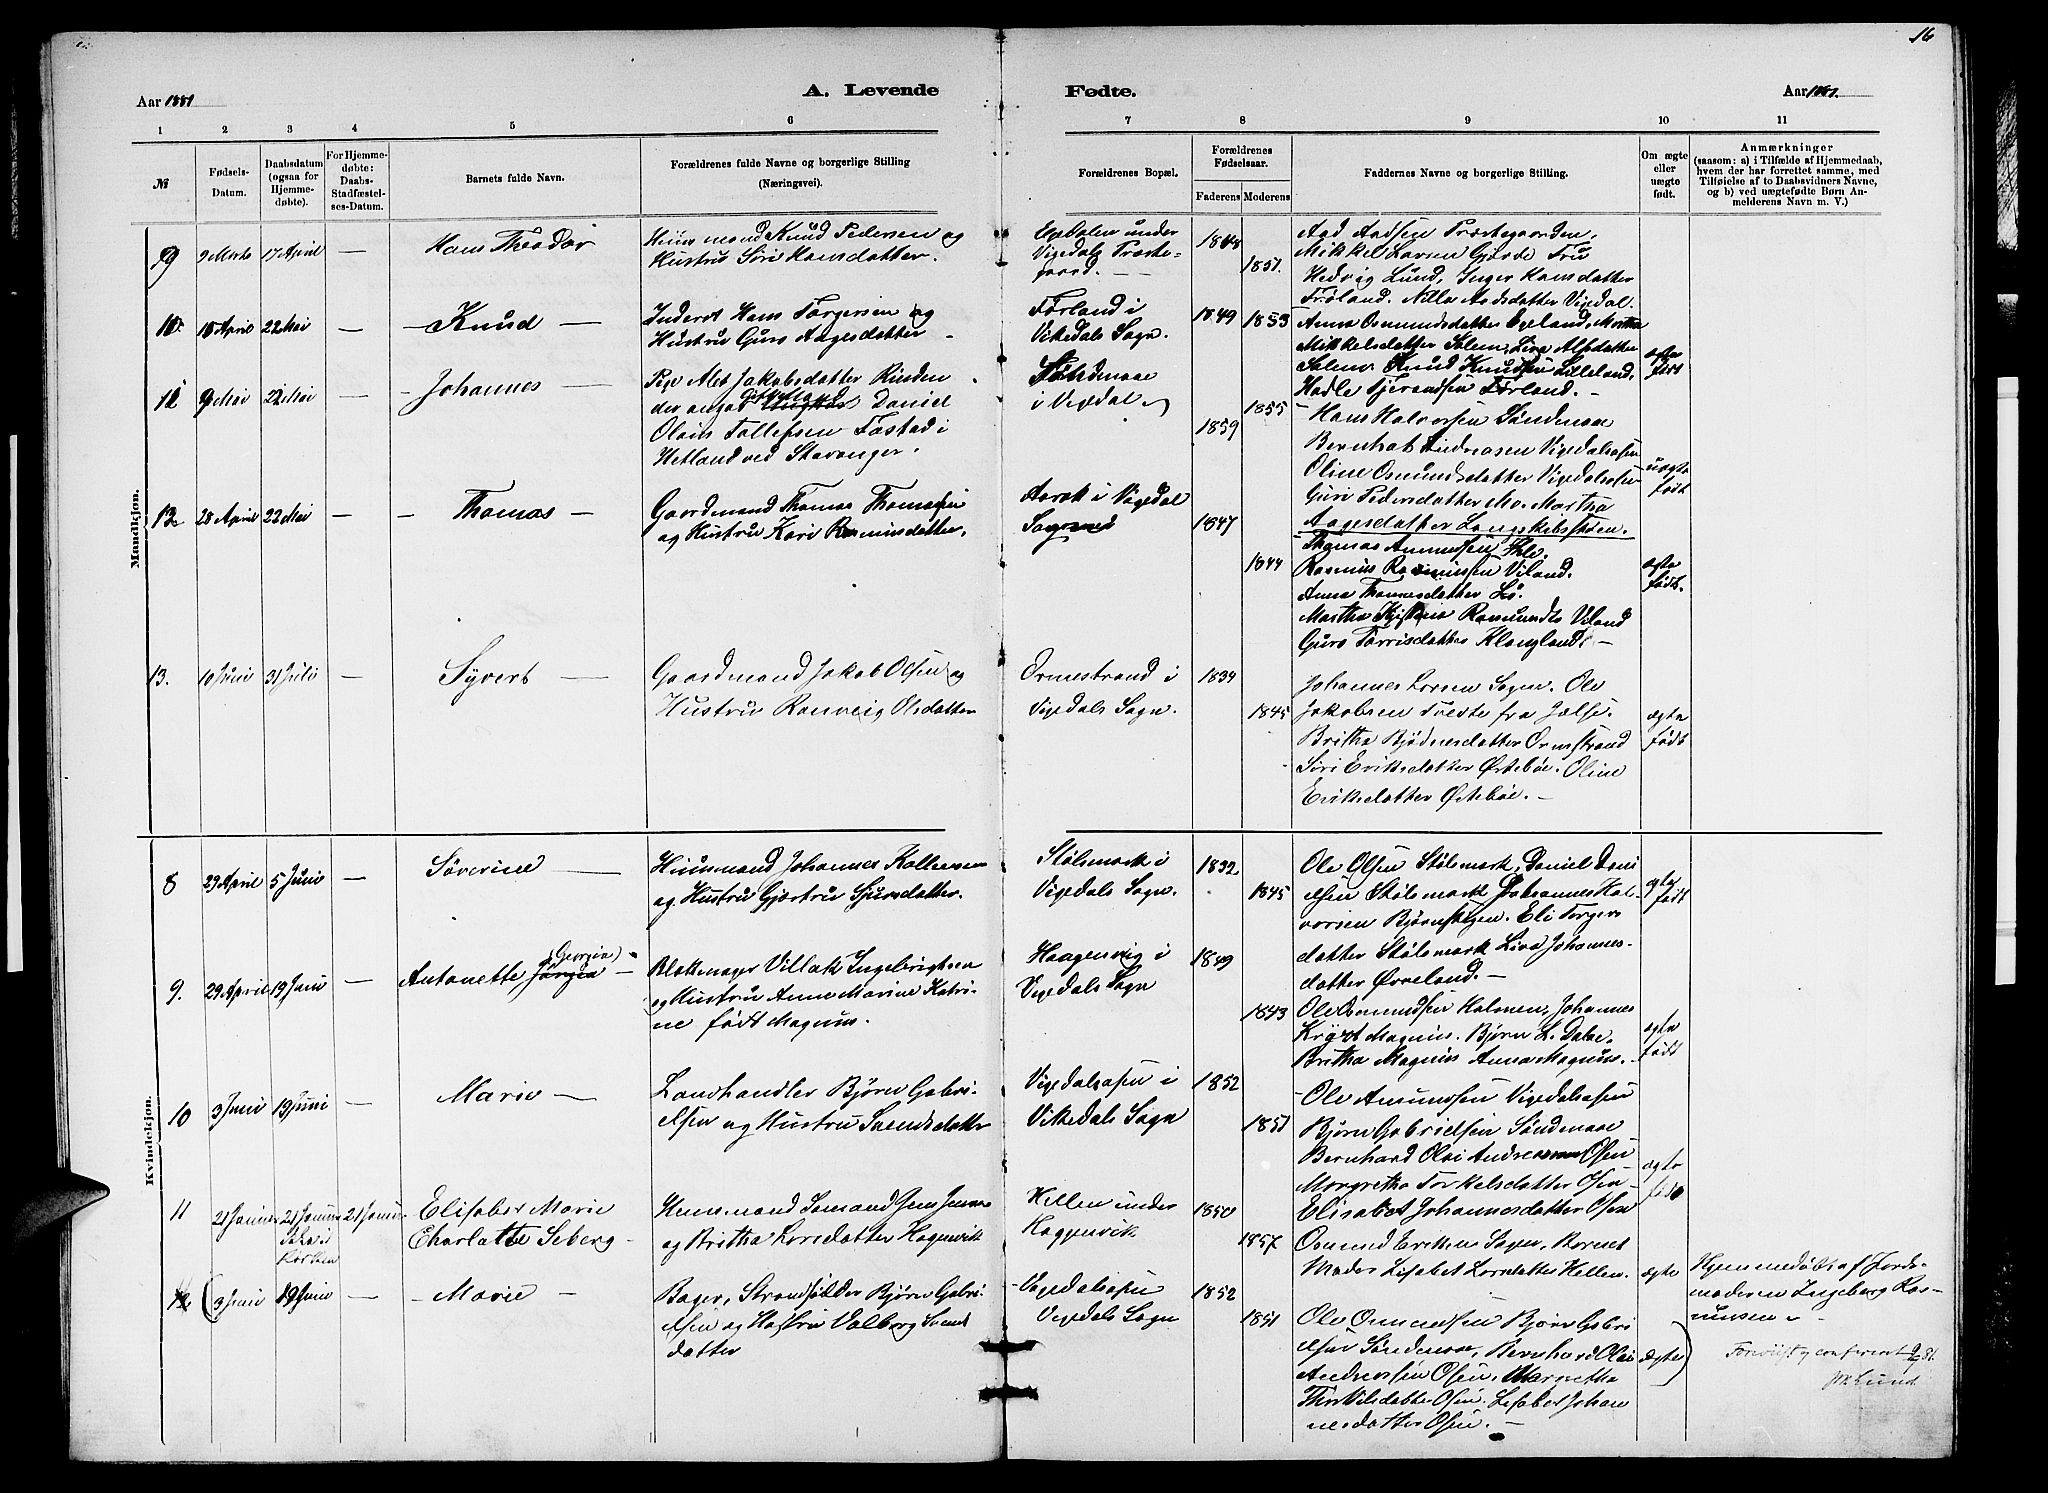 16
Aar 1881
A. Levende
Fødte.
Aar 1881.
1 2 3 4 5 6 7 8 9 10 11
№
Fødsels-Datum.
Daabsdatum (ogsaa for Hjemmedøbte).
For Hjemmedøbte: Daabs-Stadfæstelses-Datum.
Barnets fulde Navn.
Forældrenes fulde Navne og borgerlige Stilling
(Næringsvei).
Forældrenes Bopæl.
Forældrenes Fødselsaar.
Faderens Moderens
Faddernes Navne og borgerlige Stilling.
Om ægte eller uægte født.
Anmærkninger
(saasom: a) i Tilfælde af Hjemmedaab,
hvem der har forrettet samme, med
Tilføielse af to Daabsvidners Navne,
og b) ved uægtefødte Børn Anmelderens Navn m. V.)
Mandkjøn.
9 9 Marts 17 April — Hans Theodor
Huusmand Knud Pedersen og
Hustru Siri Hansdatter.
Opdalen under
Vigedals Præstegaard. —
1848 1851.
Aad Aadsen Præstegaarden,
Mikkel Larsen Gjerde Fru
Hedvig Lund, Inger Hansdatter
Frøland. Nilla Aadsdatter Vigedal.
10 10 April 22 Mai — Knud —
Inderst Hans Torgersen og
Hustru Guro Aagesdatter
Førland i
Vikedals Sogn.
1849 1853
Anna Osmundsdatter Opeland, Martha
Mikkelsdatter Salem, Liva Alfsdatter
Salem Knud Knudsen Lilleland,
Hadle Tjerandsen Førland. —
ægte født
11 9 Mai 22 Mai — Johannes —
Pige Alet Jakobsdatter Rinden
der angav Daniel
Olaus Tollefsen Fastad i
Hetland ved Stavanger.
Søndenaae
i Vigedal
1859 1855
Hans Halvorsen Søndenaae
Bernhat Andreasen Vigedalsosen
Oline Osmundsdatter Vigedalsosen
Guri Pedersdatter Mo. Martha
Aagesdatter Langskibstøen.
uægte født
12 28 April 22 Mai — Thomas —
Gaardmand Thomas Thomassen
og Hustru Kari Rasmusdatter.
Aarek i Vigedal
Sogn
1847 1844
Thomas Amundsen
Rasmus Rasmussen Viland.
Anna Thomasdatter Lø.
Martha Kristine Rasmundts Viland
Guro Torrisdatter Klongland. —
ægte født.
13. 10 Juni 31 Juli — Syvert —
Gaardmand Jakob Olsen og
Hustru Ranveig Olsdatter
Ormestrand i
Vigedals Sogn.
1839 1845
Johannes Larsen Sagen. Ole
Jakobsen Tvedte fra Jelse.
Britha Bjødnesdatter Ormstrand
Siri Eriksdatter Østebøe. Oline
Eriksdatter Østebøe. —
ægte født
Kvindekjøn.
8 29 April 5 Juni — Søverine —
Huusmand Johannes Kolbensen
og Hustru Gjertru Sjursdatter.
Stølsmark i
Vigedals Sogn.
1832 1845
Ole Olsen Stølsmark, Daniel Danielsen Stølsmark Johannes Halvorsen Bjørnstigen. Eli Torgersdatter Stølsmark Liva Johannesdatter Øvreland. —
ægte født
9. 29 April 19 Juni — Antonette (Georgia) —
Blokkemager Villak Ingebrigtsen
og Hustru Anne Marine Katrine født Magnus.
Haagenvig i
Vigedals Sogn
1849 1843
Ole Osmundsen Halsnen, Johannes
Magnus. Bjørn L. Dalae,
Britha Magnus Anna Magnus. —
ægte født
10 3 Juni 19 Juni — Marie —
Landhandler Bjørn Gabrielsen og Hustru Svendsdatter
Vigedalsosen i
Vikedals Sogn
1852 1851
Ole Asmundsen Vigedalsosen
Bjørn Gabrielsen Søndenaae
Bernhard Olai Andreassen Osen
Margretha Torkelsdatter Osen
Elisabet Johannesdatter Osen
ægte født
11 21 Januar 21 Januar 21 Januar
Elisabet Marie
Charlotte Seberg —
Huusmand Jens
og Britha Larsdatter Hagenvik
Hellen under
Haggenvik
1850 1857
Osmund Eriksen Sagen, Barnets
Moder Lisabet Larsdatter Hellen.
ægte
Hjemmedøbt af Jordmoderen Ingeborg Rasmussen.
12 (3 Juni 19 Juni — Marie —
Bager, Strandsidder Bjørn Gabrielsen og Hustru Valborg Svendsdatter
Vigedalsosen
Vigedals Sogn
1852 1851
Ole Osmundsen Bjørn Gabrielsen Søndenaae, Bernhard Olai
Andreassen Osen, Margretha
Thorkilsdatter Osen. Lisabet Johannesdatter Osen. —
ægte)
Foreviist og confereret 9/7 81.
Lund